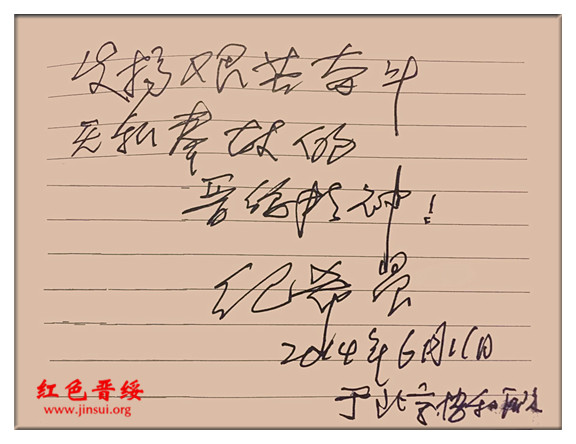 发扬艰苦奋斗
无私奉献的
晋绥精神！
纪希晨
2014年6月
于北京协和医院
红色晋绥
www.jinsui.org